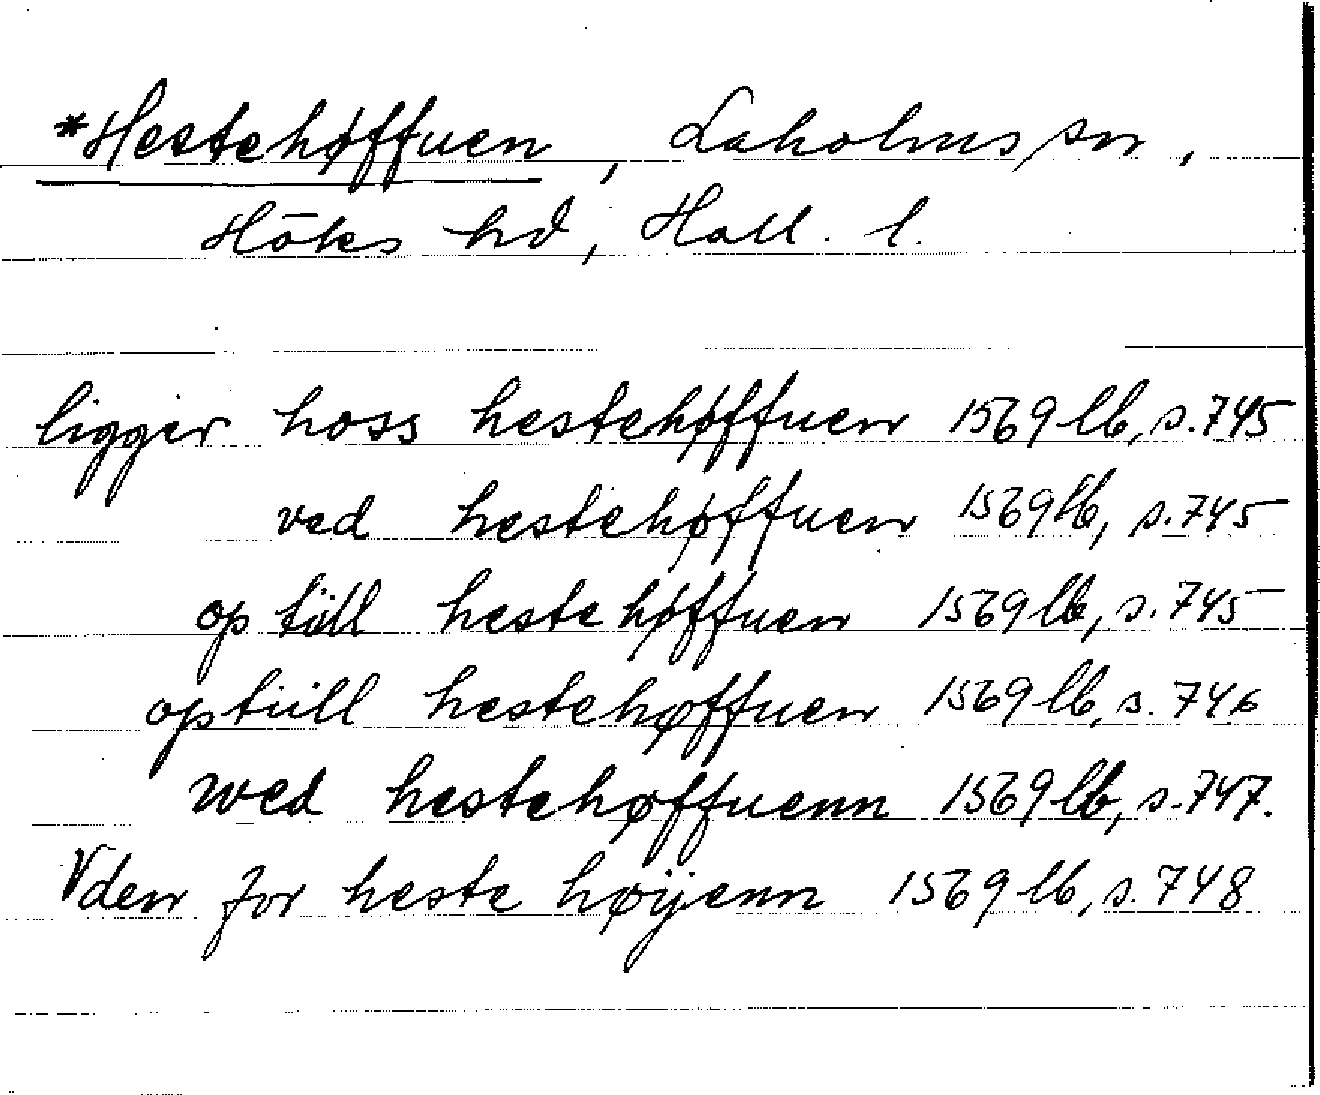 *Hestehøffuen, Laholms sn,
Höks hd, Hall. l.
ligger hoss hestehøffuen 1569 lb, s.745
ved hestehøffuen 1569 lb, s.745
op till hestehøffuen 1569 lb, s.745
optiill hestehøffuen 1569 lb, s.746
wed hestehøffuenn 1569 lb, s.747.
Vden for heste høijenn 1569 lb, s.748